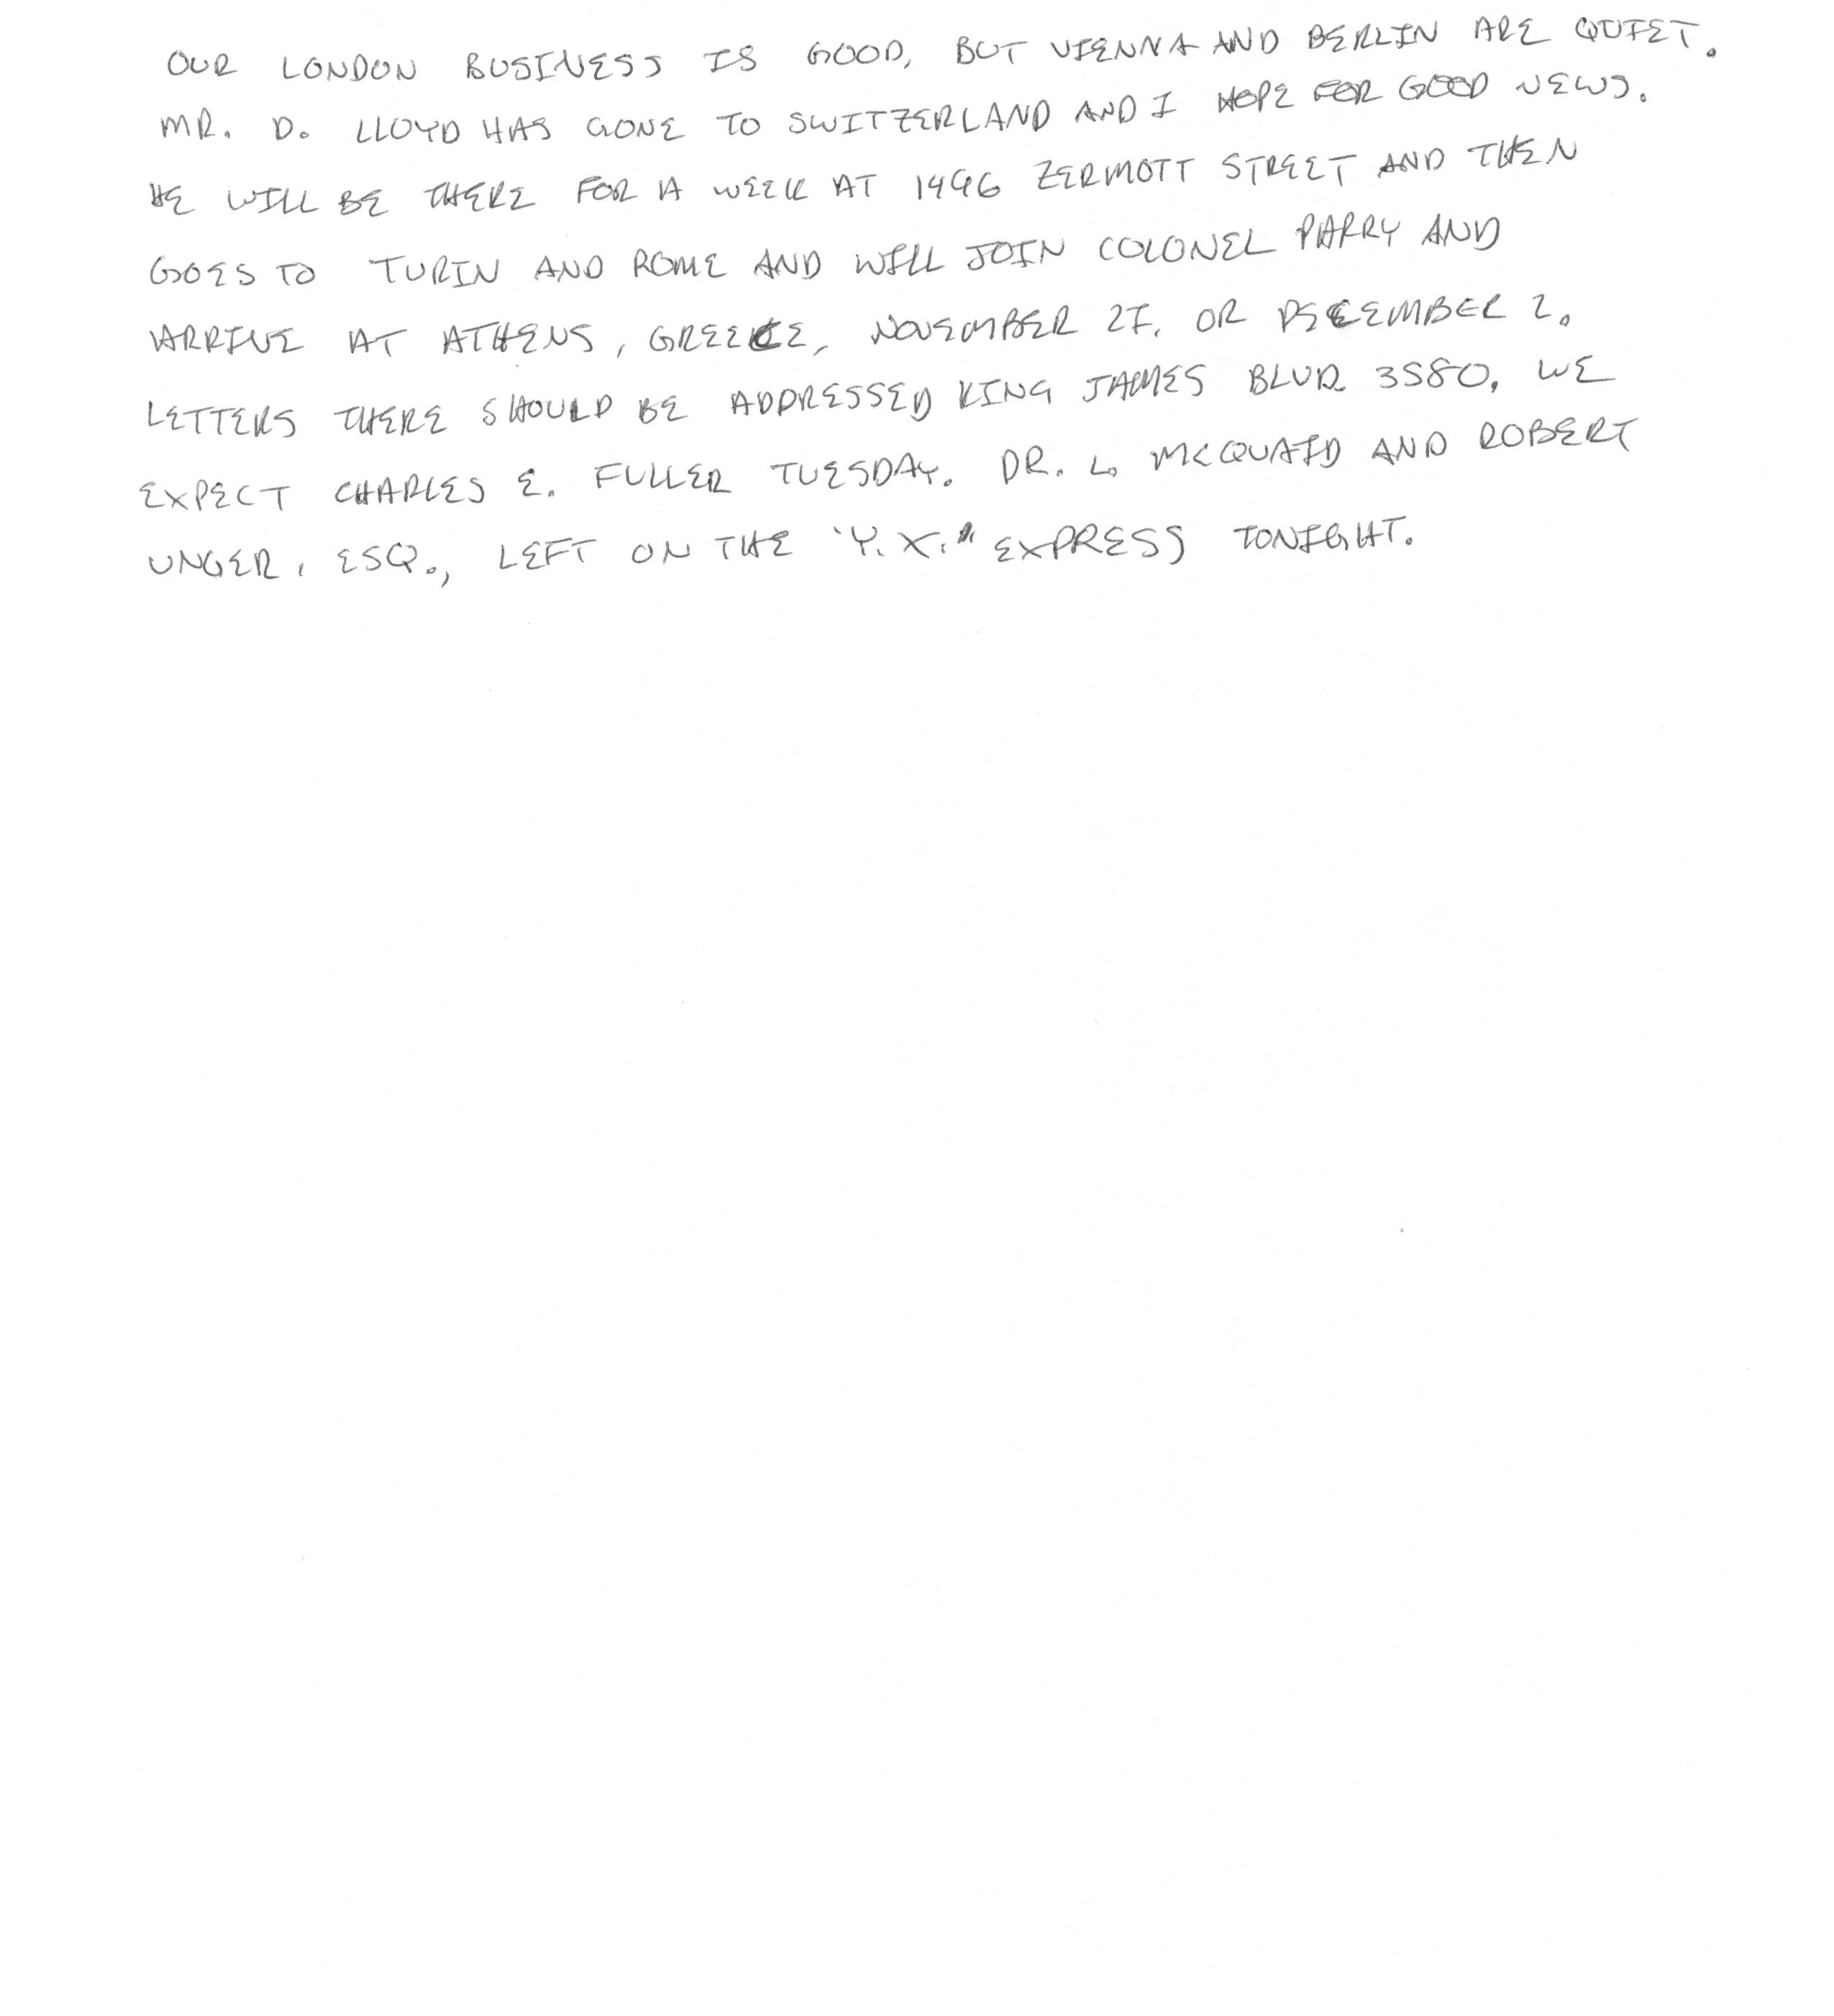 OUR LONDON BUSINESS IS GOOD, BUT VIENNA AND BERLIN ARE QUIET.
MR. D. LLOYD HAS GONE TO SWITZERLAND AND I HOPE FOR GOOD NEWS.
HE WILL BE THERE FOR A WEEK AT 1496 ZERMOTT STREET AND THEN
GOES TO TURIN AND ROME AND WILL JOIN COLONEL PARRY AND
ARRIVE AT ATHENS, GREECE, NOVEMBER 27. OR DECEMBER 2.
LETTERS THERE SHOULD BE ADDRESSED KING JAMES BLVD 3580. WE
EXPECT CHARLES E. FULLER TUESDAY. DR. L. MCQUAID AND ROBERT
UNGER, ESQ., LEFT ON THE "Y.X." EXPRESS TONIGHT.